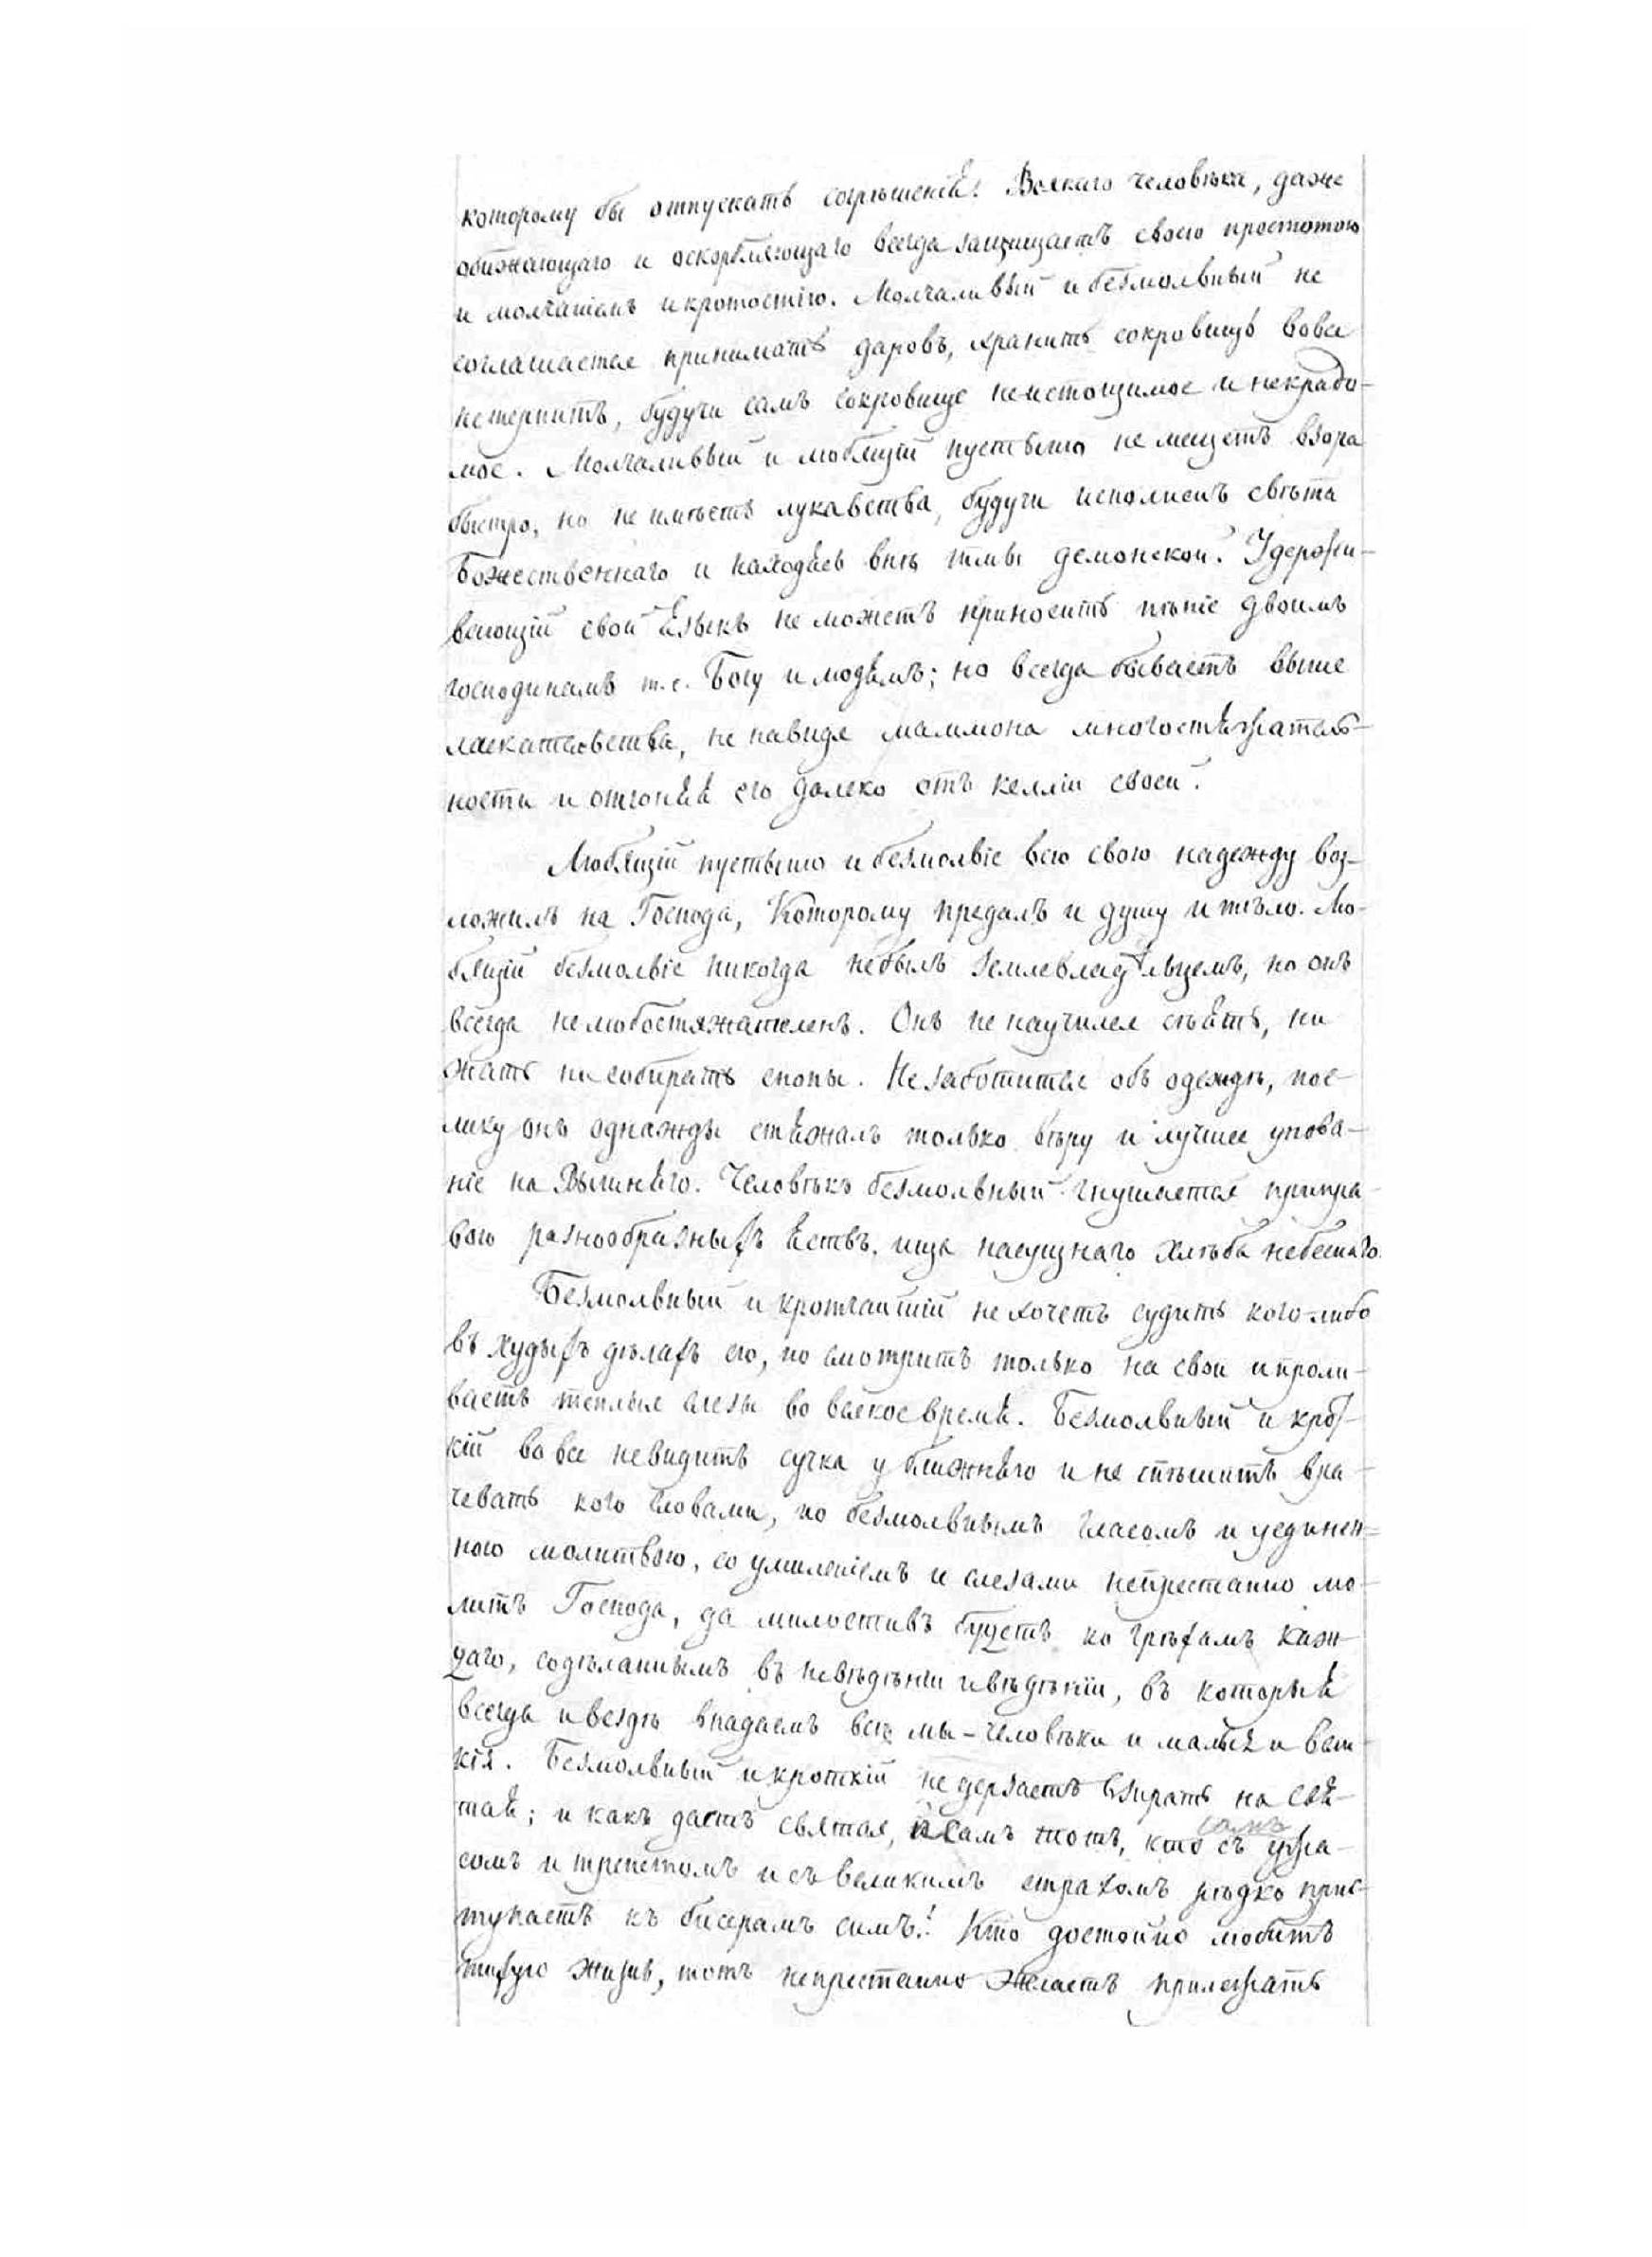 которому бы отпускать согрѣшенія! Всякаго человѣка, даже
обижающаго и оскорбляющаго всегда защищаетъ своею простотою
и молчаніемъ и кротостію. Молчаливый и безмолвный не
соглашается принимать даровъ, хранить сокровищъ вовсе
не терпитъ, будучи самъ сокровище неистощимое и некрадо-
мое. Молчаливый и любящій пустыню не мещетъ взора
быстро, но не имѣетъ лукавства, будучи исполненъ свѣта
Божественнаго и находясь внѣ тмы демонской. Удержи-
вающій свой языкъ не можетъ приносить пѣніе двоимъ
господинамъ т.е. Богу и людямъ; но всегда бываетъ выше
ласкательства, не навидя маммона многостяжатель-
ности и отгоняя его далеко отъ келліи своей.
Любящій пустыню и безмолвіе всю свою надежду воз-
ложилъ на Господа, Которому предалъ и душу и тѣло. Лю-
бящій безмолвіе никогда небылъ землевладѣльцемъ, но онъ
всегда нелюбостяжателенъ. Онъ не научился сѣять, ни
жать ни собирать снопы. Не заботится объ одеждѣ, пое-
лику онъ однажды стяжалъ только вѣру и лучшее упова-
ніе на Вышняго. Человѣкъ безмолвный гнушается припра-
вою разнообразныхъ яствъ, ища насущнаго хлѣба небеснаго.
Безмолвный и кротчайшій не хочетъ судить кого-либо
въ худыхъ дѣлахъ его, но смотритъ только на свои и проли-
ваетъ теплыя слезы во всякое время. Безмолвный и крот-
кій вовсе невидитъ сучка у ближняго и не спѣшитъ вра-
чевать кого словами, но безмолвнымъ гласомъ и уединен-
ною молитвою, со умиленіемъ и слезами непрестанно мо-
литъ Господа, да милостивъ будетъ ко грѣхамъ каж-
даго, содѣланнымъ въ невѣдѣніи и вѣдѣніи, въ которыя
всегда и вездѣ впадаемъ всѣ мы - человѣки и малыя и вели-
кія. Безмолвный и кроткій не дерзаетъ взирать на свя-
тая; и какъ дастъ святая, самъ тотъ, кто самъ съ ужа-
сомъ и трепетомъ и съ великимъ страхомъ рѣдко прис-
тупаетъ къ бисерамъ симъ! Кто достойно любитъ
тихую жизнь, тотъ непрестанно желаетъ прилежать